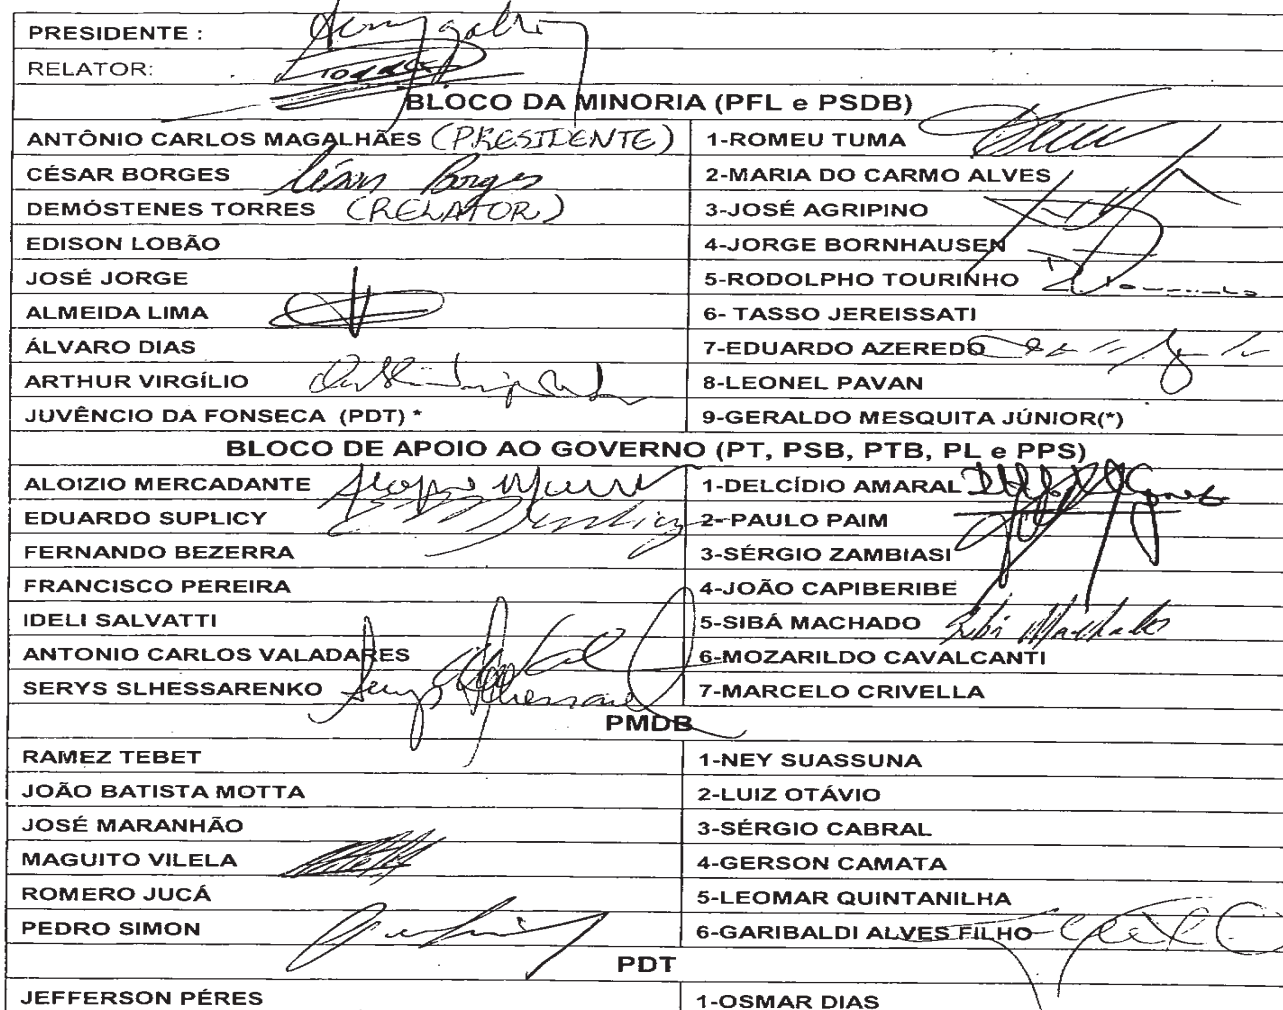 PRESIDENTE :
RELATOR:
BLOCO DA MINORIA (PFL e PSDB)
ANTÔNIO CARLOS MAGALHÃES (PRESIDENTE) 1-ROMEU TUMA
CÉSAR BORGES César Borges 2-MARIA DO CARMO ALVES
DEMÓSTENES TORRES (RELATOR) 3-JOSÉ AGRIPINO
EDISON LOBÃO 4-JORGE BORNHAUSEN
JOSÉ JORGE 5-RODOLPHO TOURINHO
ALMEIDA LIMA 6- TASSO JEREISSATI
ÁLVARO DIAS 7-EDUARDO AZEREDO
ARTHUR VIRGÍLIO 8-LEONEL PAVAN
JUVÊNCIO DA FONSECA (PDT) * 9-GERALDO MESQUITA JÚNIOR(*)
BLOCO DE APOIO AO GOVERNO (PT, PSB, PTB, PL e PPS)
ALOIZIO MERCADANTE 1-DELCÍDIO AMARAL
EDUARDO SUPLICY 2-PAULO PAIM
FERNANDO BEZERRA 3-SÉRGIO ZAMBIASI
FRANCISCO PEREIRA 4-JOÃO CAPIBERIBE
IDELI SALVATTI 5-SIBÁ MACHADO Sibá Machado
ANTONIO CARLOS VALADARES 6-MOZARILDO CAVALCANTI
SERYS SLHESSARENKO 7-MARCELO CRIVELLA
PMDB
RAMEZ TEBET 1-NEY SUASSUNA
JOÃO BATISTA MOTTA 2-LUIZ OTÁVIO
JOSÉ MARANHÃO 3-SÉRGIO CABRAL
MAGUITO VILELA 4-GERSON CAMATA
ROMERO JUCÁ 5-LEOMAR QUINTANILHA
PEDRO SIMON 6-GARIBALDI ALVES FILHO
PDT
JEFFERSON PÉRES 1-OSMAR DIAS